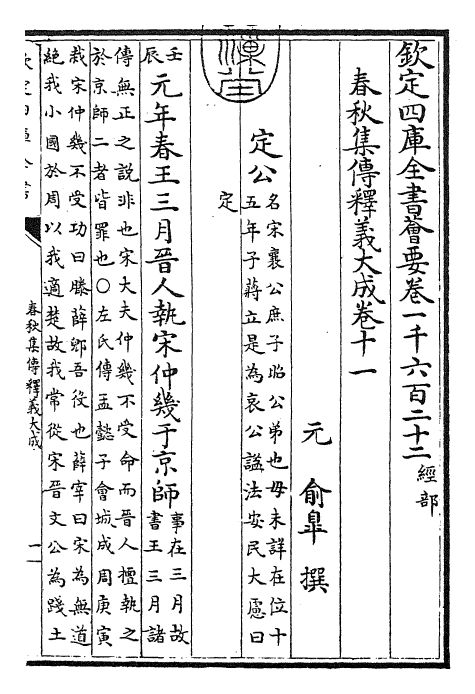 欽定四庫全書薈要卷一千六百二十二 經部
春秋集傳釋義大成卷十一
元 俞臯 撰
定公 名宋襄公庶子昭公弟也母未詳在位十
五年子蔣立是為哀公諡法安民大慮曰
定
壬辰 元年春王三月晉人執宋仲幾于京師 事在三月故
書王三月諸
傳無正之說非也宋大夫仲幾不受命而晉人擅執之
於京師二者皆罪也○左氏傳孟懿子會城成周庚寅
栽宋仲幾不受功曰滕薛郳吾役也薛宰曰宋為無道
絶我小國於周以我適楚故我常從宋晉文公為踐土
欽定四庫全書
春秋集傳釋義大成
一